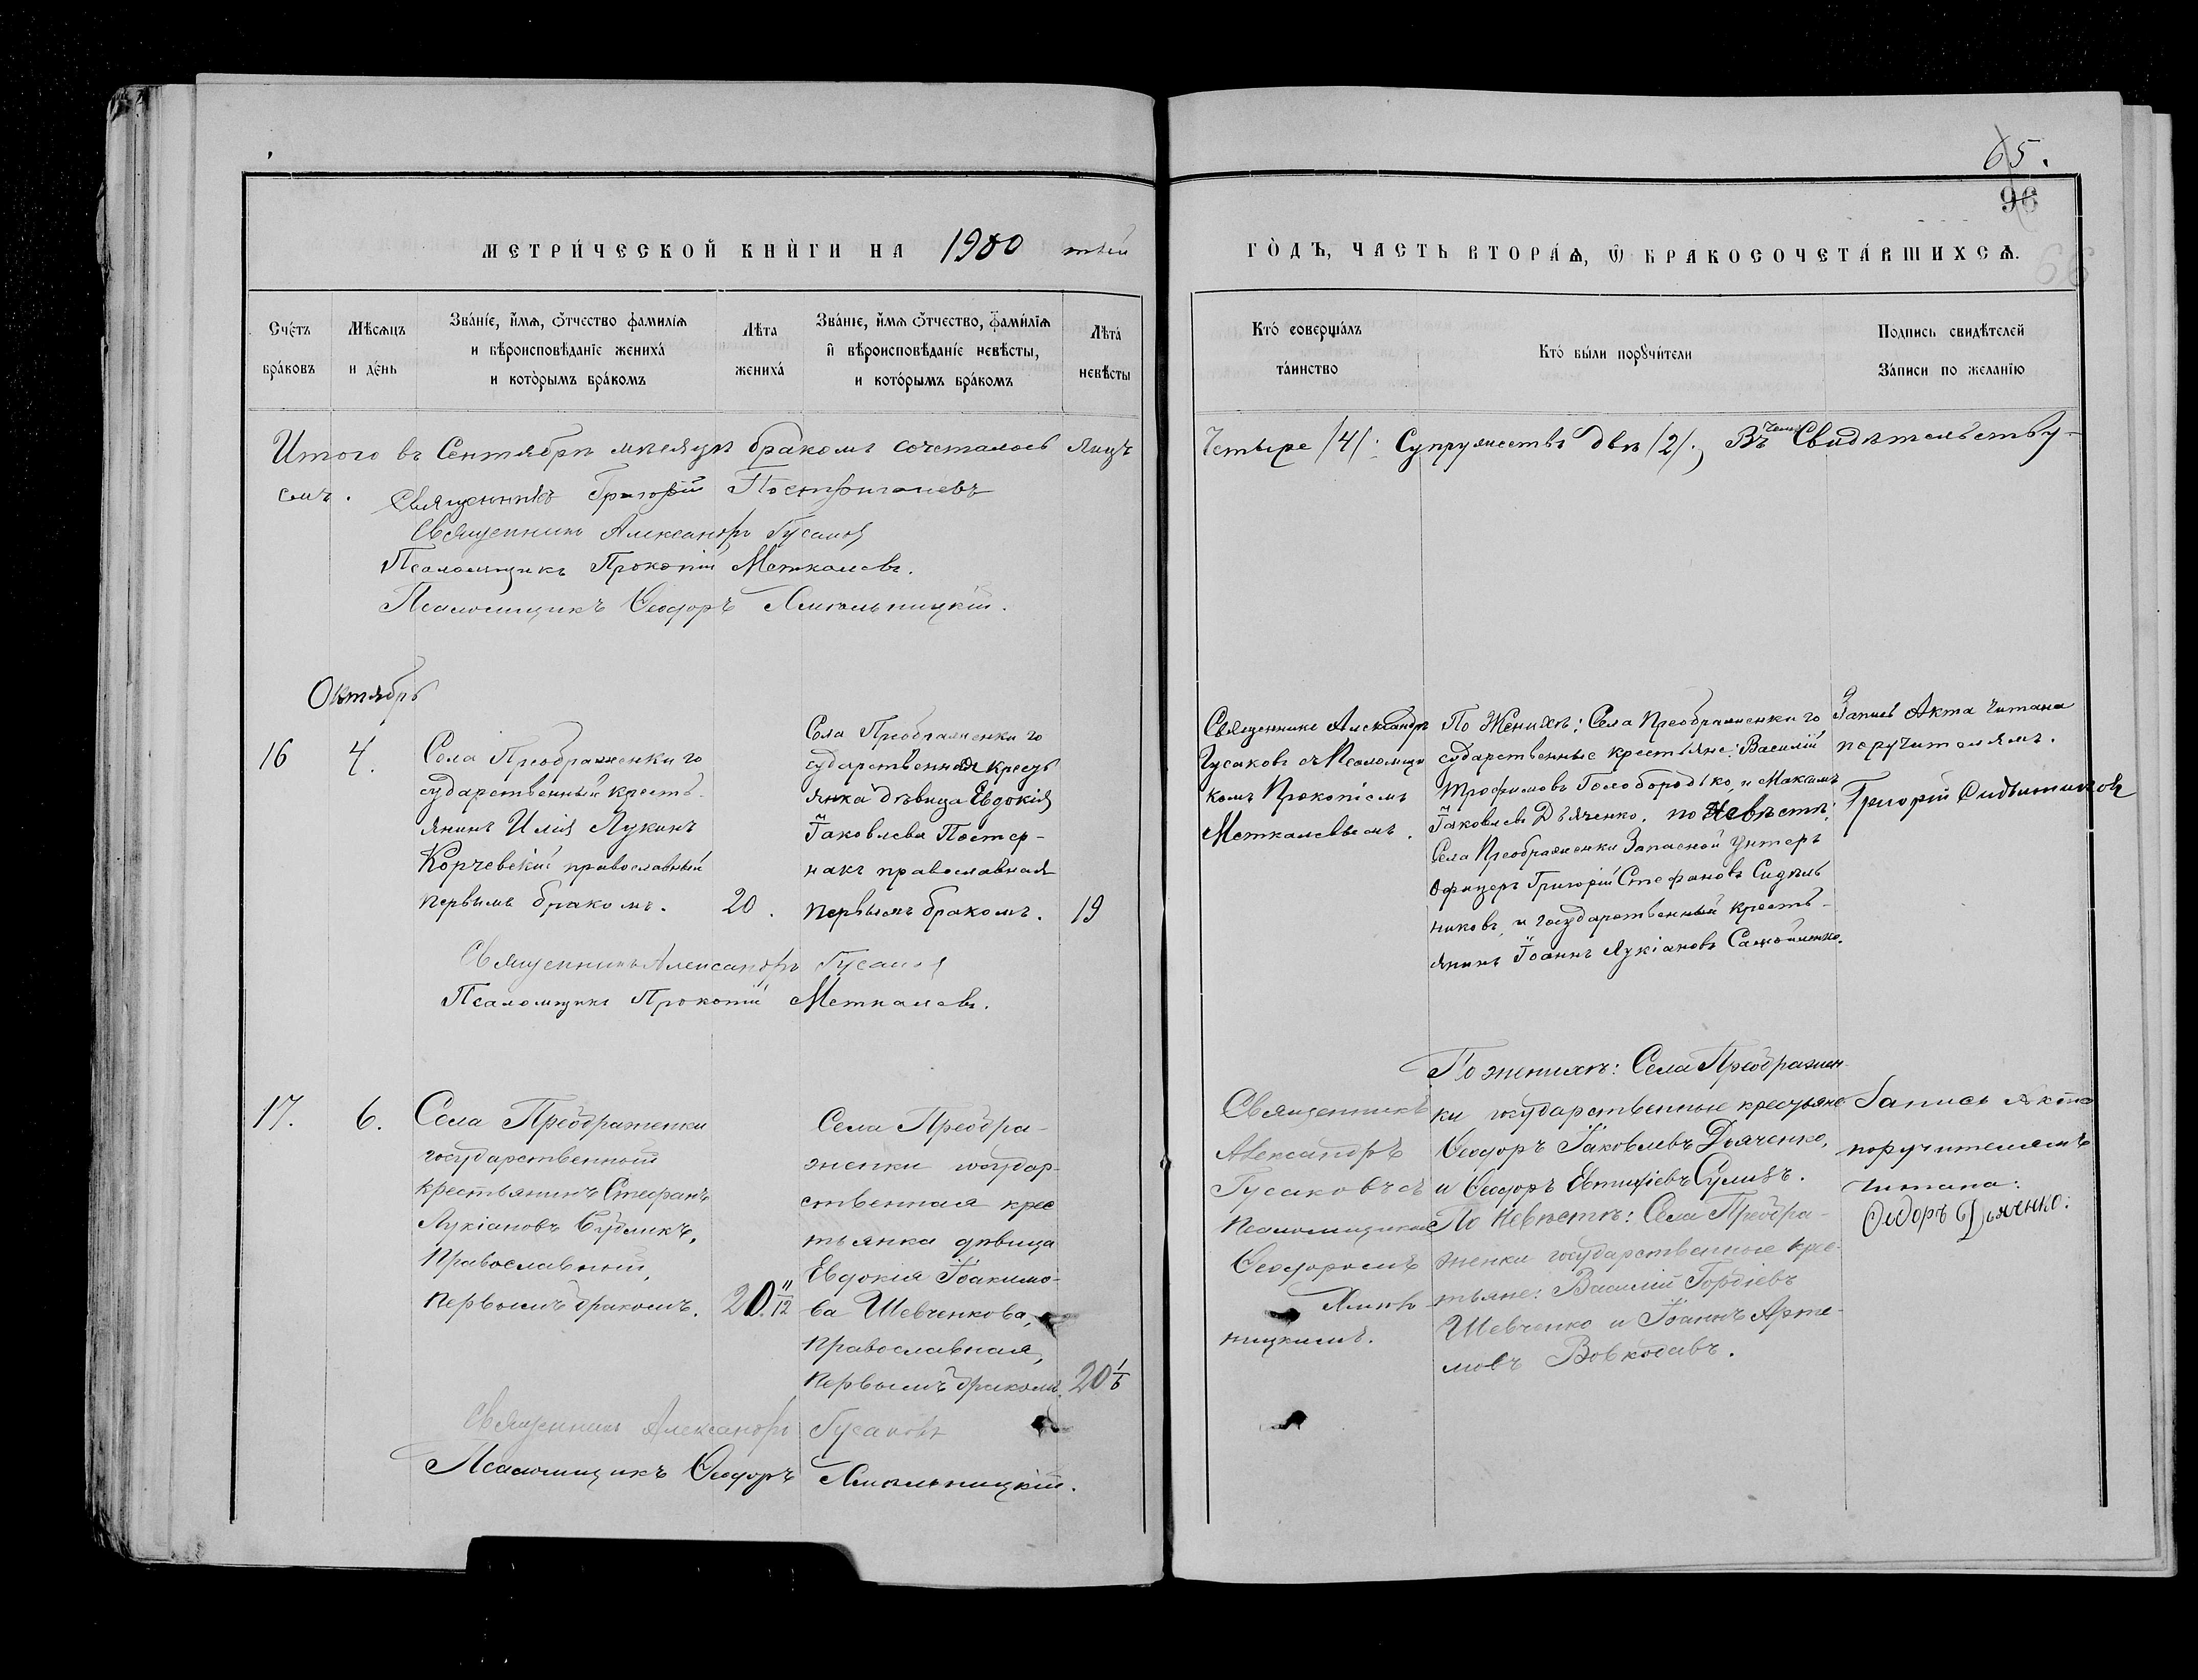 65.
96
66
МЕТРИ́ЧЕСКОЙ КНИ́ГИ НА 1900 тый
ГО́ДЪ, ЧАСТЬ ВТОРА́Ѧ, Ѡ БРАКОСОЧЕТА́ВШИХСѦ.
Сче́тъ
бра́ковъ
Мѣ́сѧцъ
и де́нь
Зва́нїе, и́мѧ, ѻ́тчество фами́лїѧ
и вѣроисповѣ́данїе жениха́
и кото́рымъ бра́комъ
Лѣ́та
жениха́
Зва́нїе, и́мѧ ѻ́тчество, фами́лїѧ
и вѣроисповѣ́данїе невѣ́сты,
и кото́рымъ бра́комъ
Лѣ́та
невѣ́сты
Кто́ соверша́лъ
та́инство
Кто́ бы́ли порꙋчи́тели
По́дпись свидѣ́телей
За́писи по жела́нїю
Итого въ Сентябрѣ мѣсяцѣ бракомъ сочеталось лицъ
Четыре /4/. Супружествъ два /2/. Въ чемъ Свидѣтельству-
емъ.
Священникъ Григорій
Священникъ Александръ Гусаковъ
Псаломщикъ Прокопій Меткалевъ.
Псаломщикъ Ѳеодоръ Хмѣльницкій.
Октябрь
16
4.
Села Преображенки го
сударственный кресть-
янинъ Илія Лукинъ
Корчевскій православный
первымъ бракомъ.
20.
Села Преображенки го
сударственная кресть
янка дѣвица Евдокія
Іаковлева Постер-
накъ православная
первымъ бракомъ.
19
Священникъ Александръ
Гусаковъ съ Псаломщи
комъ Прокопіемъ
Меткалевымъ.
По Женихѣ: Села Преображенки го
сударственные крестьяне: Василій
Трофимовъ Голобородько, и Максимъ
Іаковлевъ Дьяченко. по Невѣстѣ:
Села Преображенки Запасной Унтеръ
Офицеръ Григорій Стефановъ Сидѣль
никовъ, и государственный кресть-
янинъ Іоаннъ Лукіановъ Самойленко.
Запись Акта читана
поручителямъ.
Григорій Сидѣльников
Священникъ Александръ Гусаковъ
Псаломщикъ Прокопій Меткалевъ.
17.
6.
Села Преображенки
государственный
крестьянинъ Стефанъ
Лукіановъ Бубликъ,
Православный,
Первымъ бракомъ.
20. 11/12
Села Преобра-
женки государ-
ственная крес
тьянка дѣвица
Евдокія Іоакимо-
ва Шевченкова,
Православная,
Первымъ бракомъ.
20 1/6
Священникъ
Александръ
Гусаковъ съ
Псаломщикомъ
Ѳеодоромъ
Хмѣль
ницкимъ.
По женихѣ: Села Преображен-
ки государственные крестьяне
Ѳеодоръ Іаковлевъ Дьяченко,
и Ѳеодоръ Евтихіевъ Сулимъ.
По Невѣстѣ: Села Преобра-
женки государственные крес-
тьяне: Василій Гордіевъ
Шевченко и Іоаннъ Арте-
мовъ Вовкодавъ.
Запись Акта
поручителямъ
читана:
Федоръ Дьяченко.
Священникъ Александръ Гусаковъ
Псаломщикъ Ѳеодоръ Хмѣльницкій.